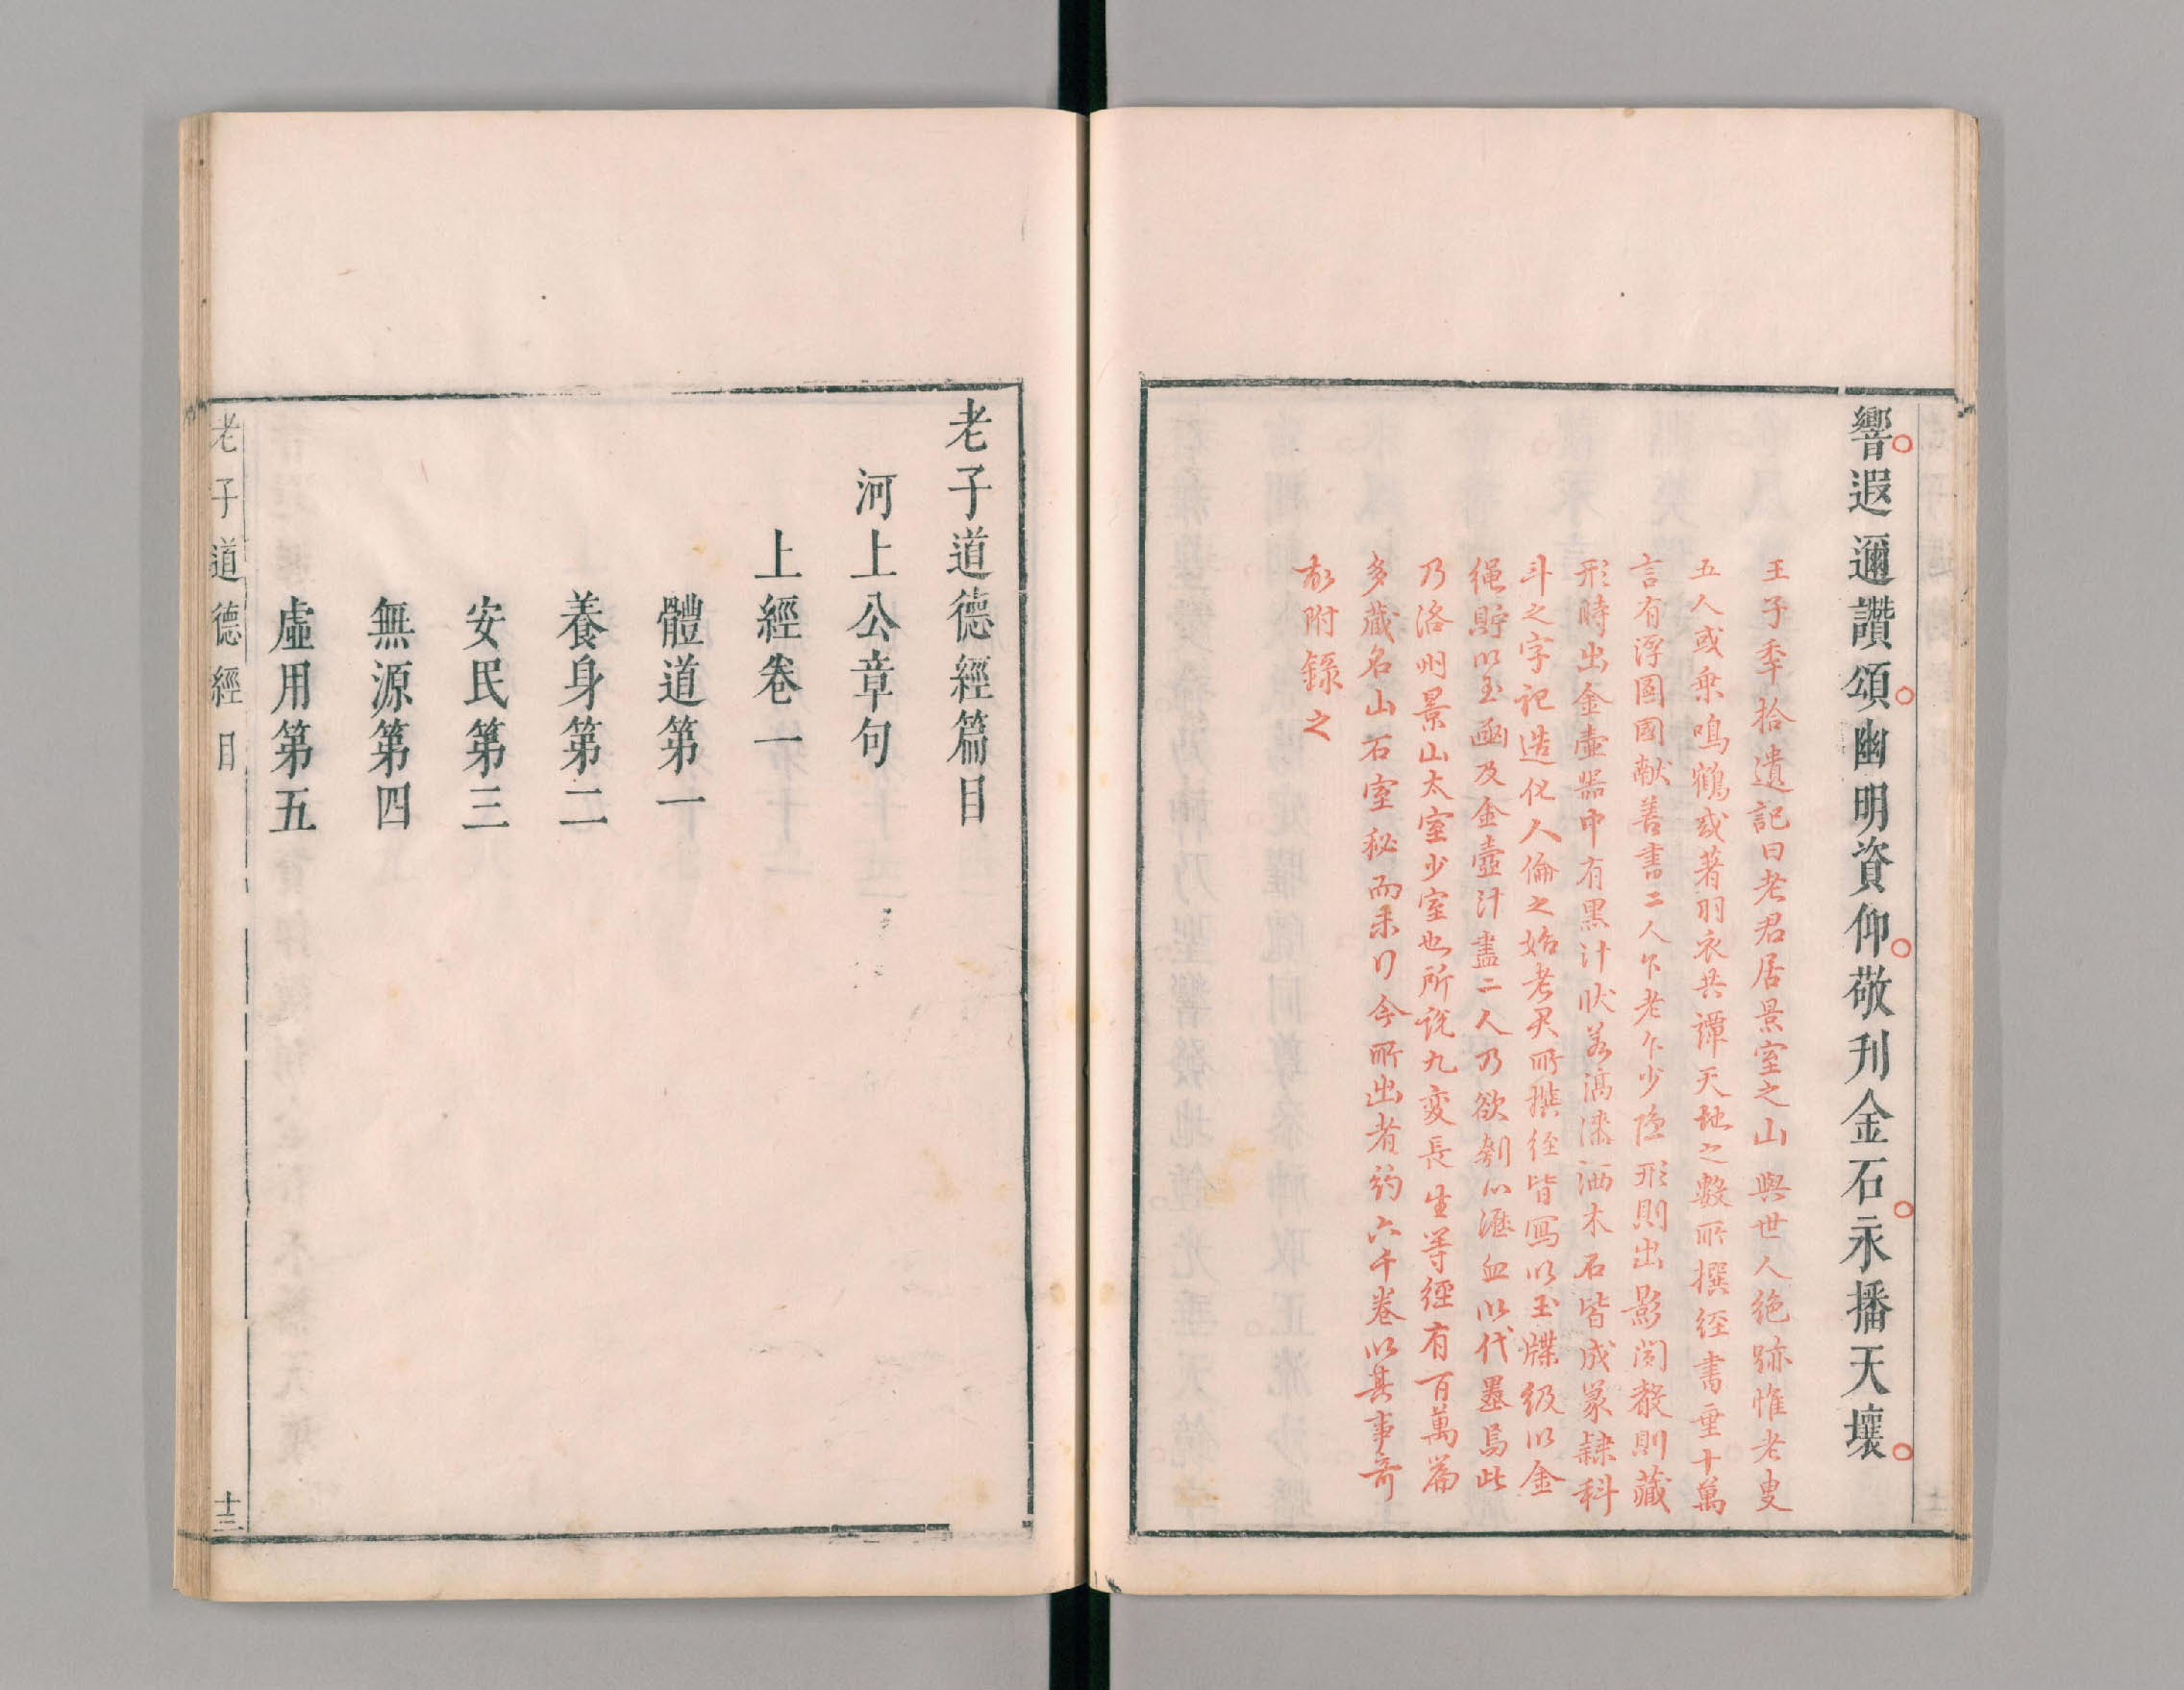 響遐邇讚頌幽明資仰敬刊金石永播天壤
王子秊拾遺記曰老君居景室之山與世人絶跡惟老叟
五人或乗鳴鶴或著羽衣共譚天地之數所撰經書垂十萬
言有浮圖國献善書二人乍老乍少隐形則出影闻聲則藏
形時出金壷器中有黒汁状若淳漆洒木石皆成篆隷科
斗之字記造化人倫之始老君所撰经皆寫以玉牒级以金
縄貯以玉函及金壺汁盡二人乃欲刳心瀝血以代墨焉此
乃洛州景山太室少室也所説九変長生等經有百萬篇
多藏名山石室秘而未行今所出者約六千卷以其事奇
故附録之
老子道德經篇目
河上公章句
上經卷一
體道第一
養身第二
安民第三
無源第四
虛用第五
老子道德經 目
十三